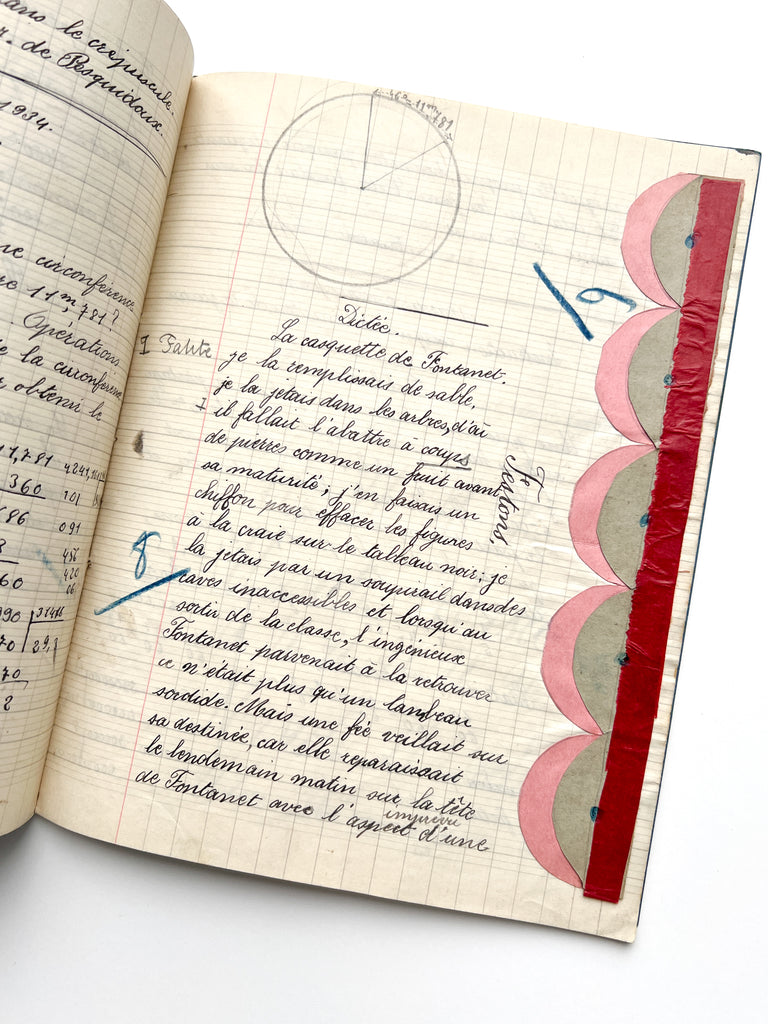 dans le crépuscule.
r. de Pesquidoux.
1934.
re circonférence
re 11m,781?
Opérations
e la circonférence
r obtenu le
11,781
360
686
60
990
70
70
2
4241,16
101
091
456
420
06
31416
29,
46° = 11m,781
Dictée.
La casquette de Fontanet.
1 Faute
je la remplissais de sable,
je la jetais dans les arbres, d'où
il fallait l'abattre à coups
de pierres comme un fruit avant
sa maturité; j'en faisais un
chiffon pour effacer les figures
à la craie sur le tableau noir; je
la jetais par un soupirail dans des
caves inaccessibles et lorsqu'au
sortir de la classe, l'ingénieux
Fontanet parvenait à la retrouver
ce n'était plus qu'un lambeau
sordide. Mais une fée veillait sur
sa destinée, car elle reparaissait
le lendemain matin sur la tête
imprévu
de Fontanet avec l'aspect d'une
Festons.
8
9